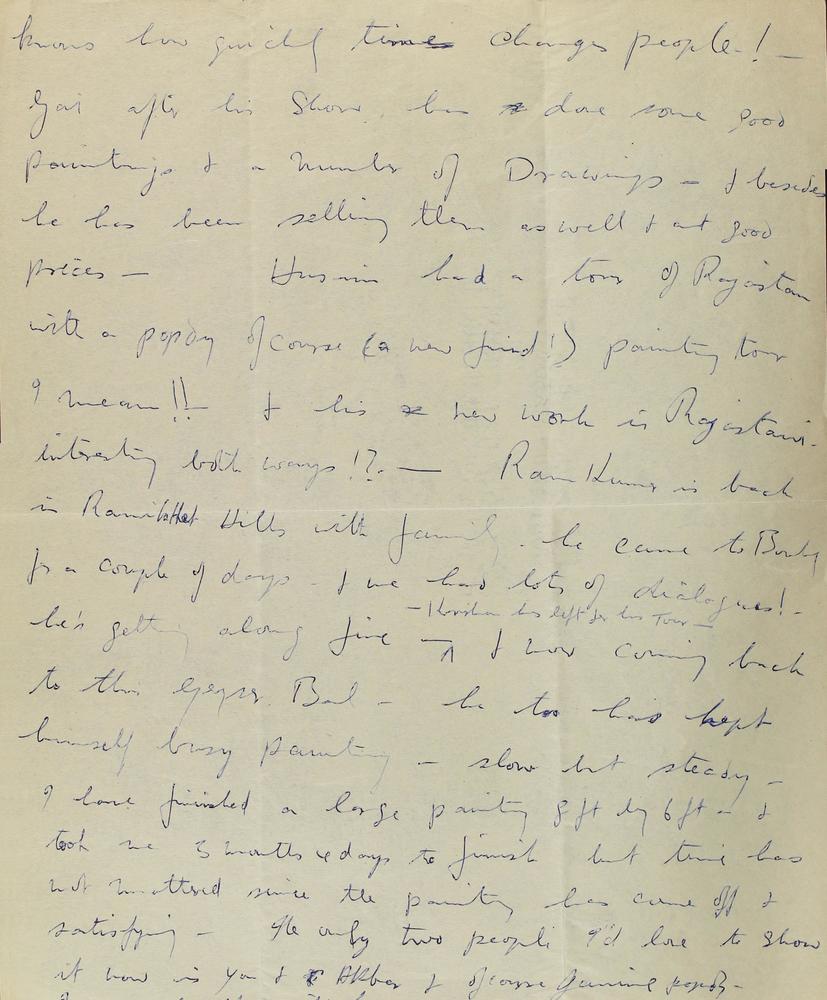 knows how quickly time changes people! —
Gai after his Show, has done some good
paintings & a number of Drawings – & besides
he has been selling them as well & at good
prices — Husain had a tour of Rajastan
with a popsy ofcourse (a new find!) painting tour
I mean!! — & his new work is Rajastani.
interesting both ways!?. — Ram Kumar is back
in Ranikhet Hills with family. he came to Bomby
for a couple of days – & we had lots of dialogues! –
– Krishen has left for his Tour –
he's getting along fine — & now coming back
to this Bal – he too has kept
himself busy painting – slow but steady –
I have finished a large painting 8 ft by 6 ft – &
took me 3 months & days to finish but time has
not mattered since the painting has come off &
satisfying – The only two people I'd love to show
it now is you & Akbar & ofcourse popsy –